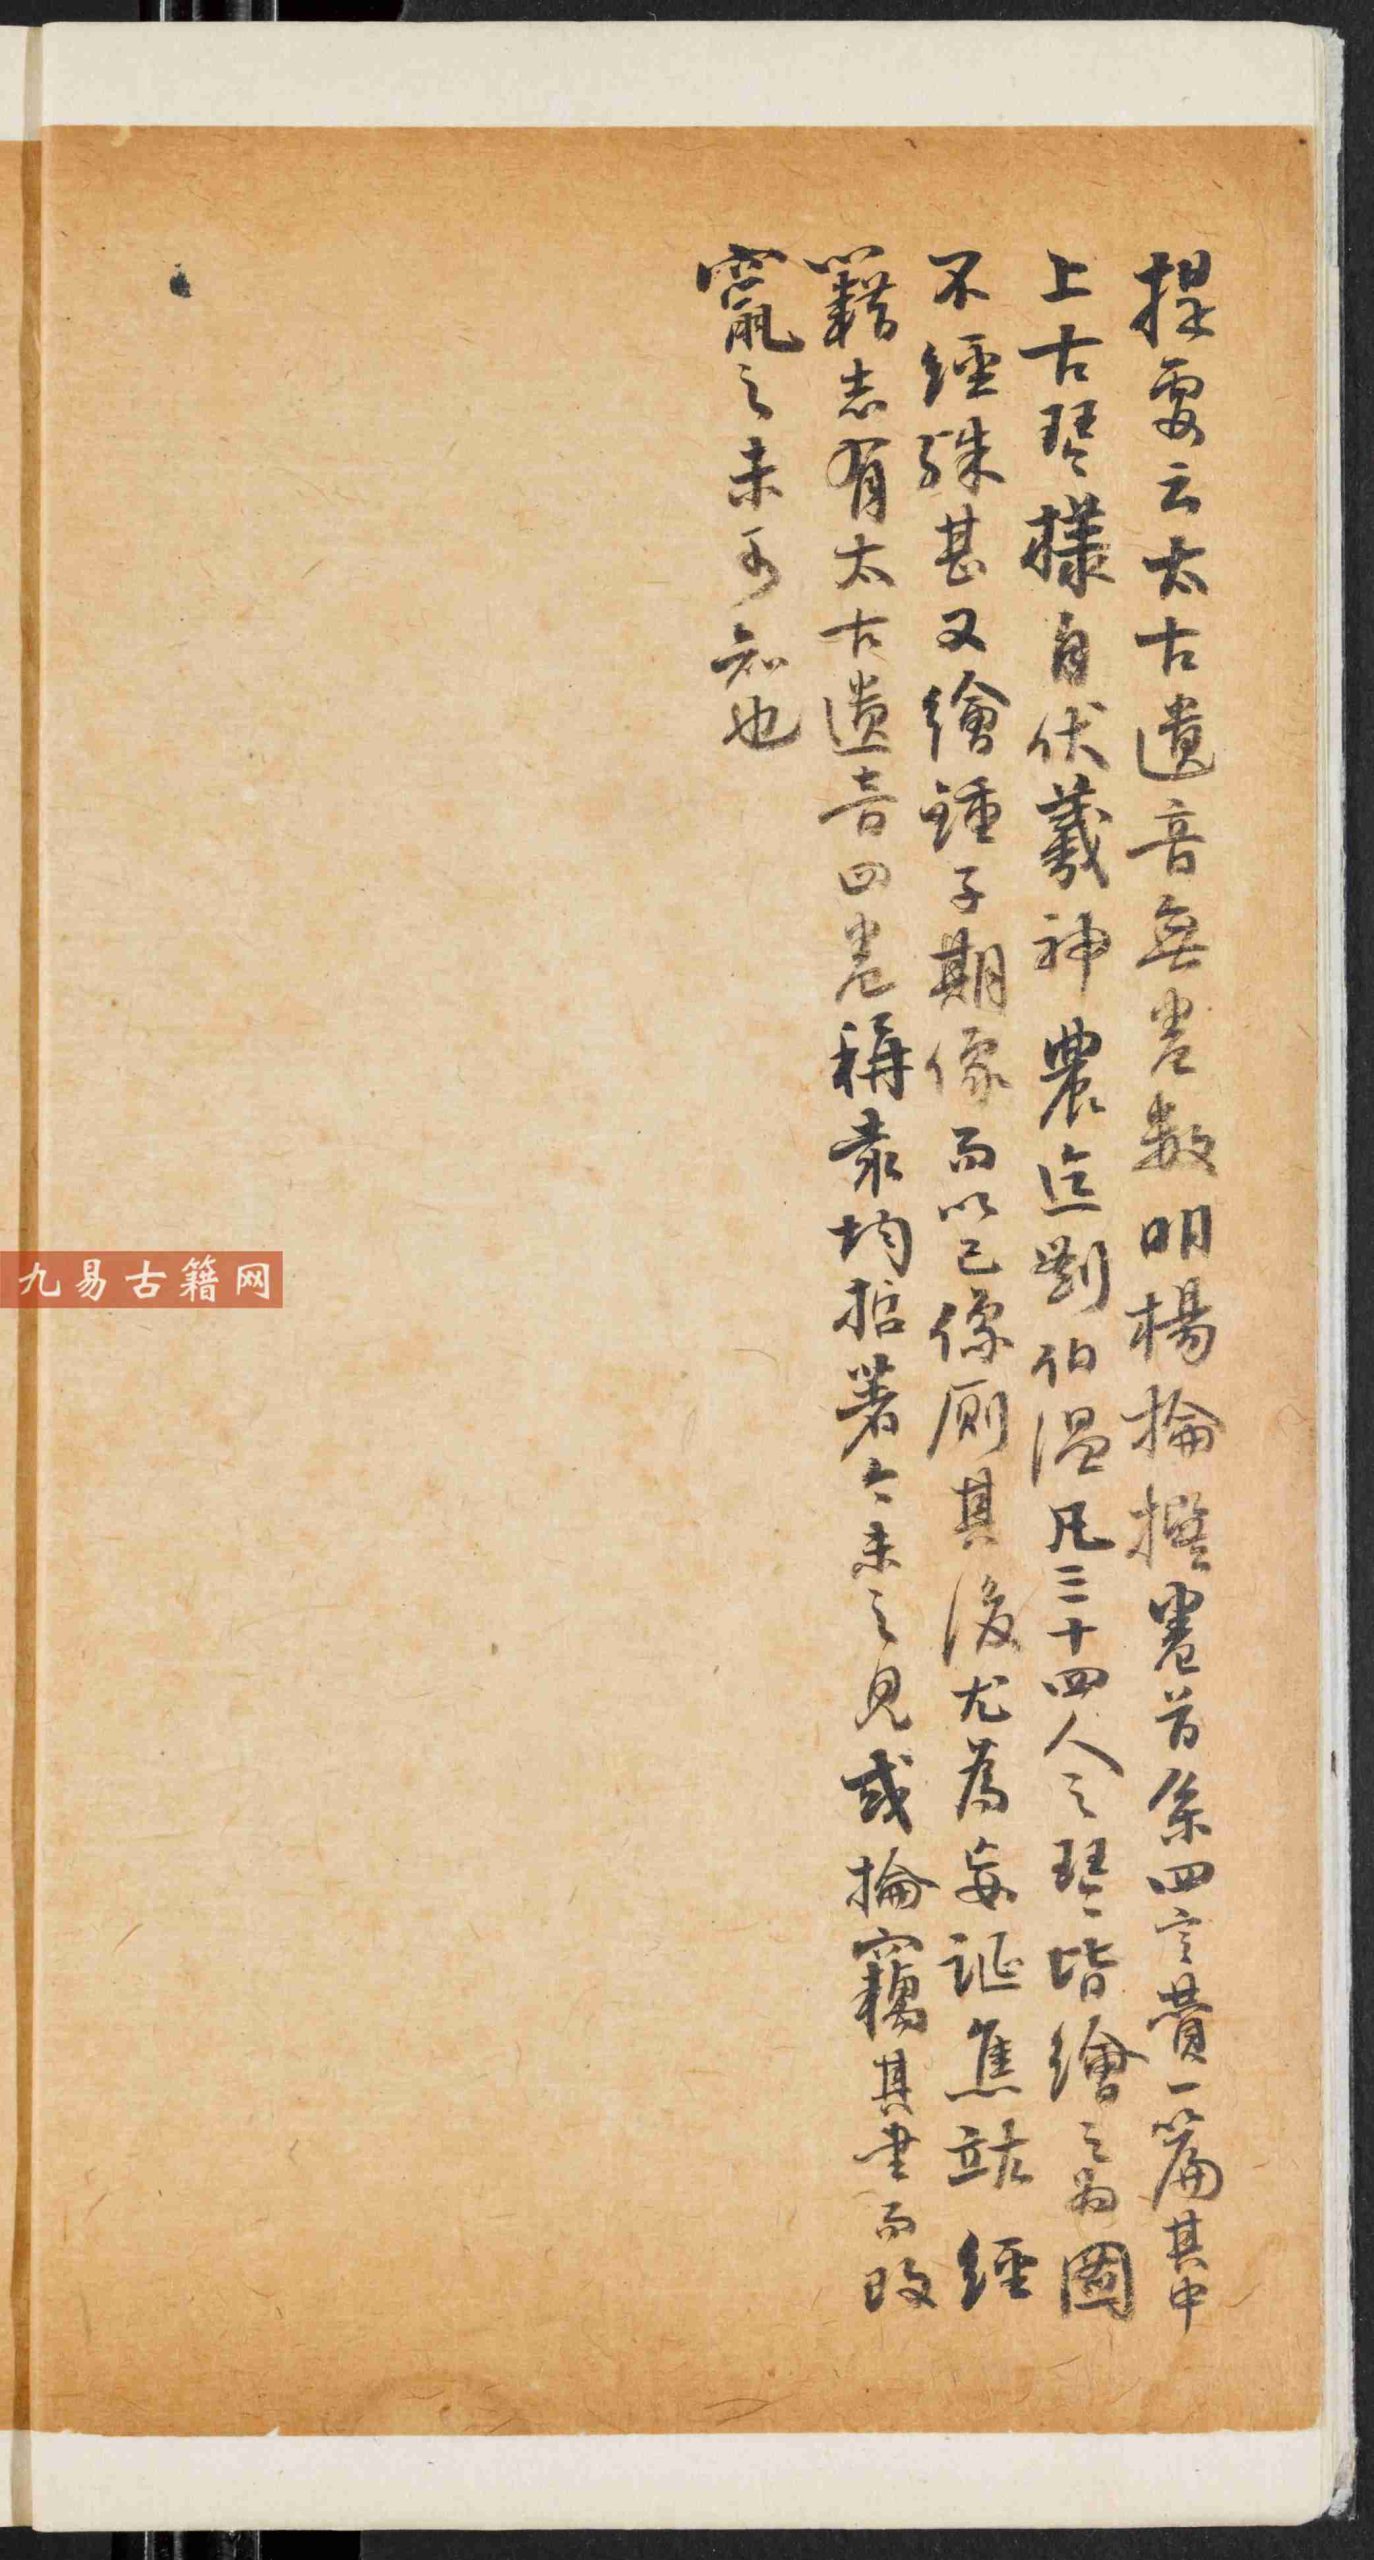 提要云太古遺音無卷數明楊掄撰卷首系四言贊一篇其中
上古琴樣自伏羲神農迄劉伯溫凡三十四人之琴皆繪之為圖
不經殊甚又繪鍾子期像而以己像厠其後尤為妄誕焦竑經
籍志有太古遺音四卷稱袁均哲著今未之見或掄竊其書而改
竄之未可知也
九易古籍网